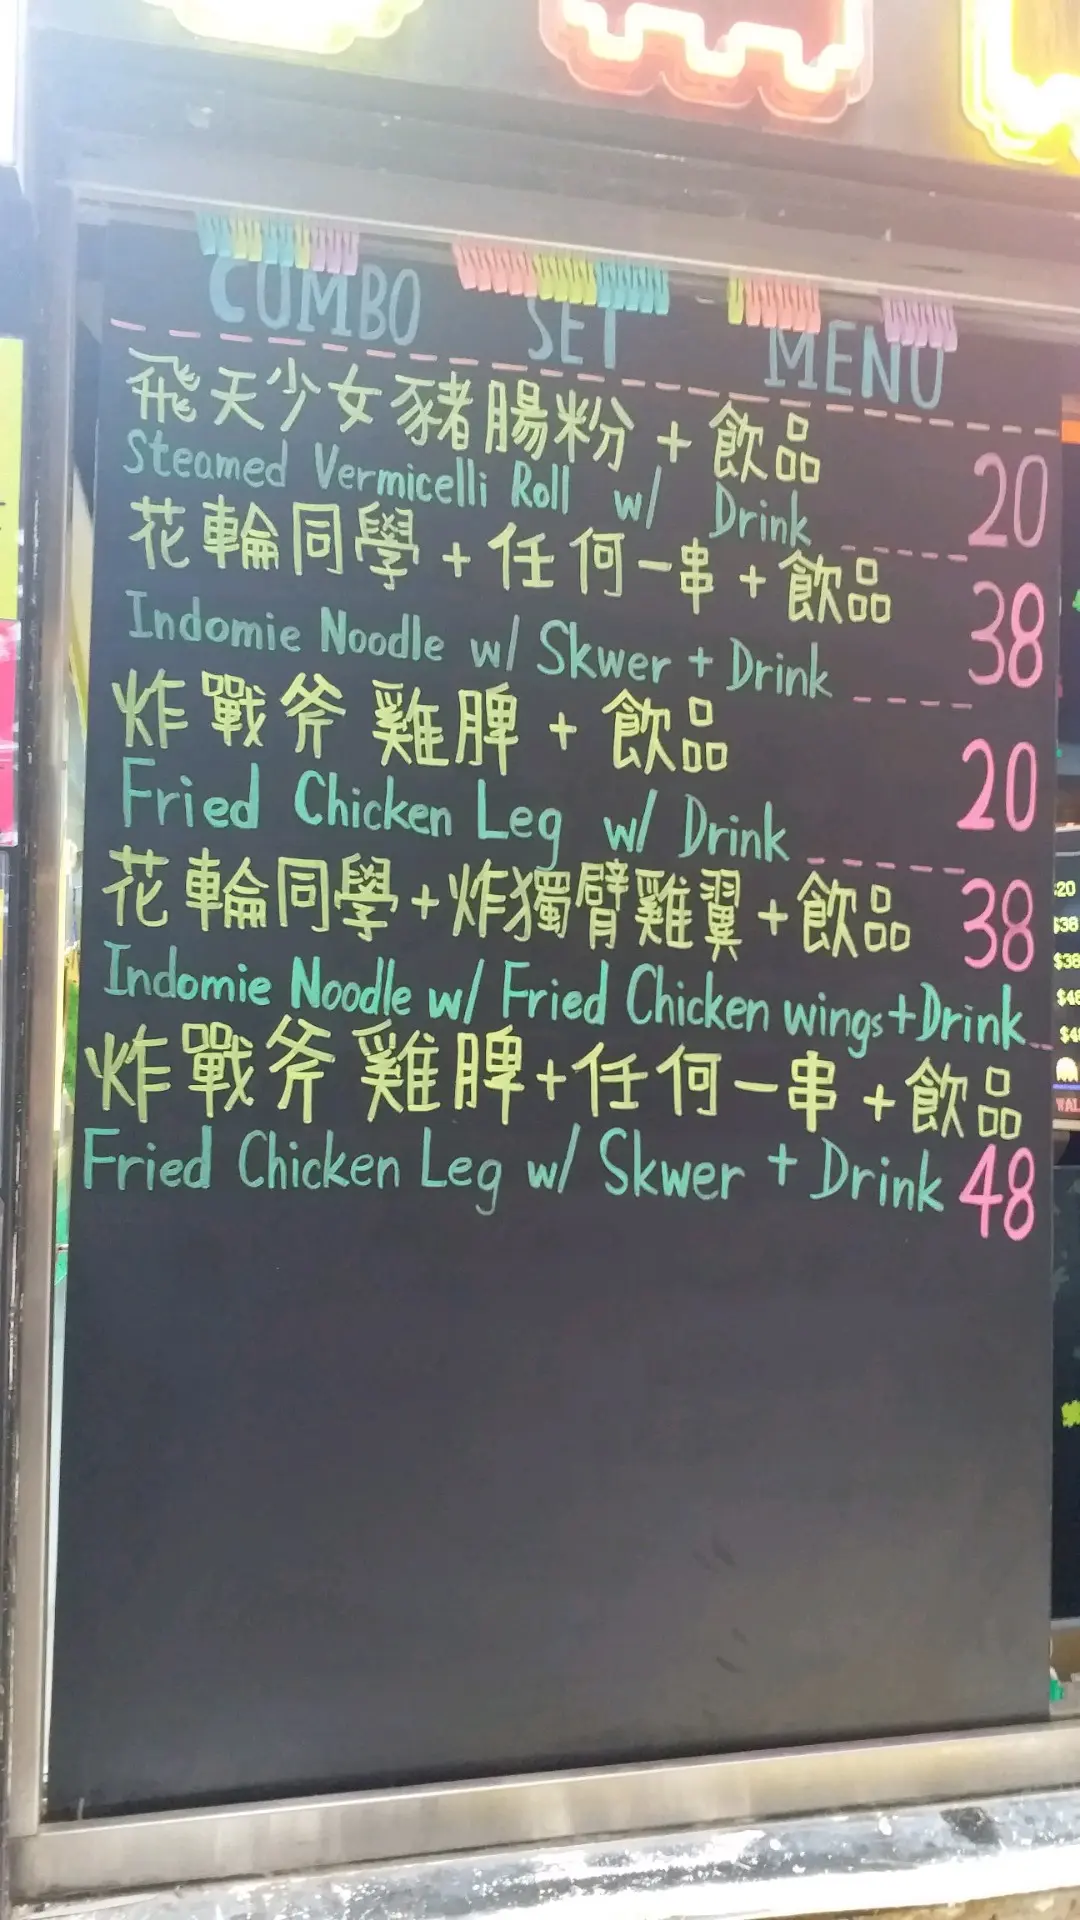 COMBO SET MENU
飛天少女豬腸粉 + 飲品
Steamed Vermicelli Roll w/ Drink 20
花輪同學 + 任何一串 + 飲品
Indomie Noodle w/ Skwer + Drink 38
炸戰斧雞髀 + 飲品
Fried Chicken Leg w/ Drink 20
花輪同學+炸獨臂雞翼+飲品
Indomie Noodle w/ Fried Chicken wings+Drink 38
炸戰斧雞髀+任何一串+飲品
Fried Chicken Leg w/ Skwer + Drink 48
20
$38
$38